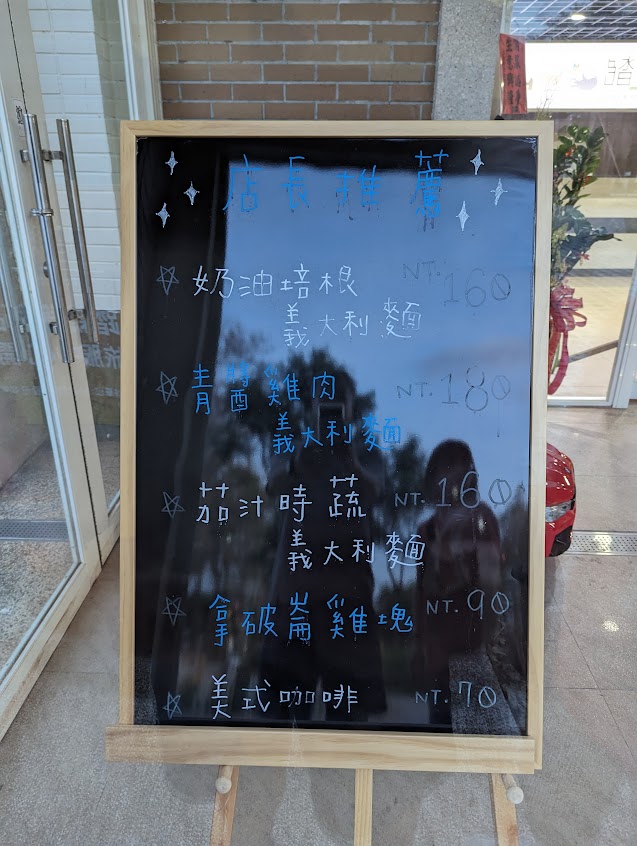 店長推薦
奶油培根 NT.160
義大利麵
青醬雞肉 NT.180
義大利麵
茄汁時蔬 NT.160
義大利麵
拿破崙雞塊 NT.90
美式咖啡 NT.70